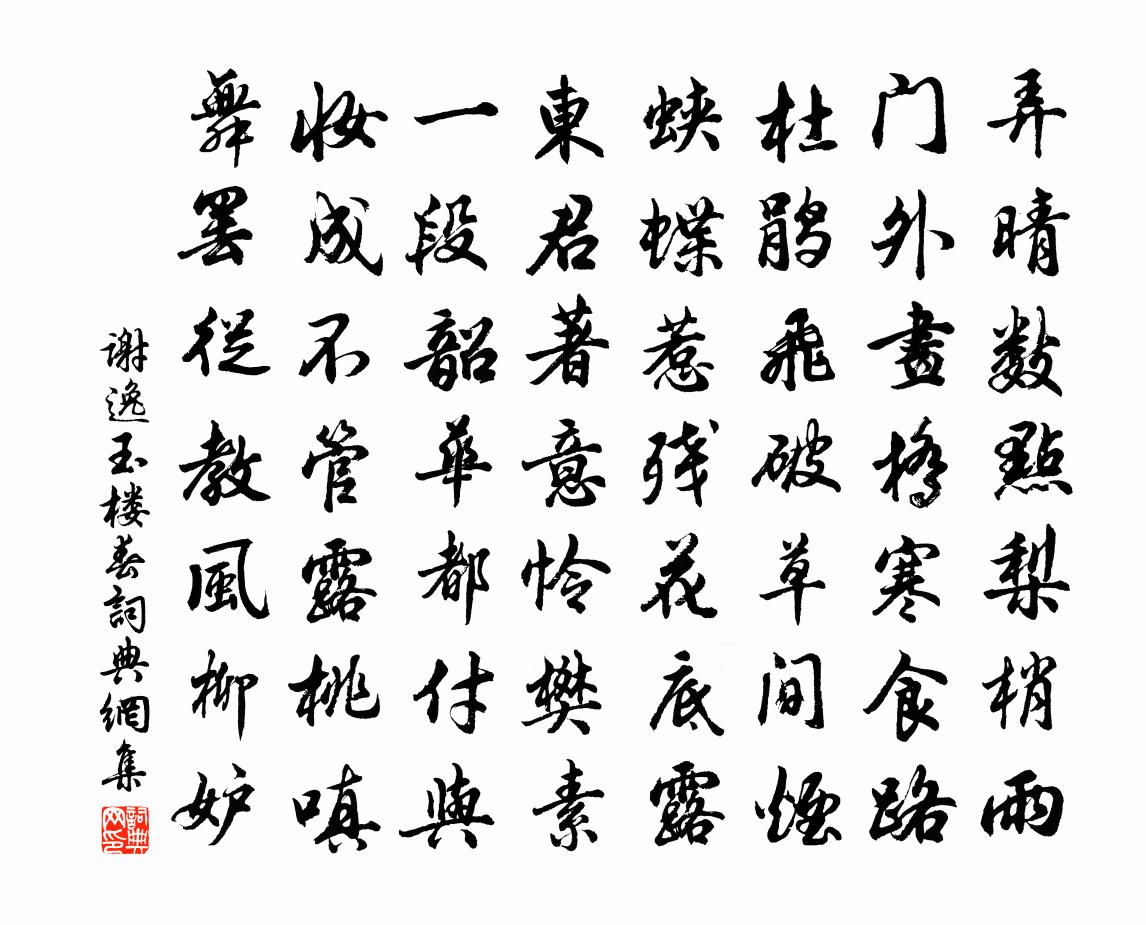 弄晴数點梨梢雨
门外畫橋寒食路
杜鹃飛破草间煙
蛱蝶惹残花底露
東君著意怜樊素
一段韶華都付與
妆成不管露桃嗔
舞罢從教風柳妒
谢逸玉楼春詞典網集
詞典网印